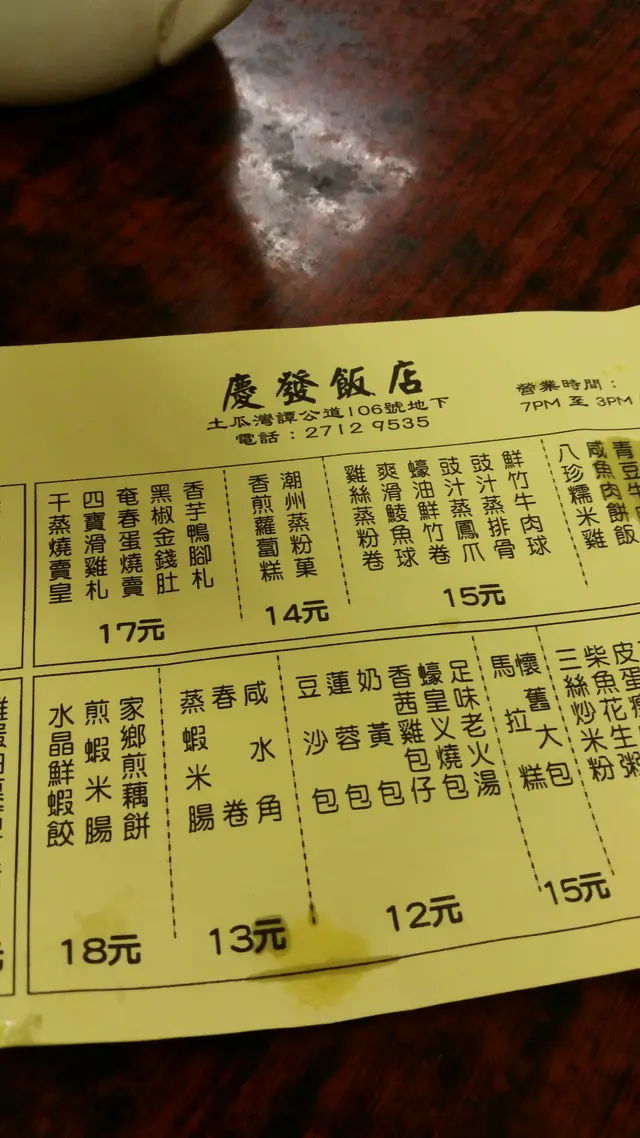 慶發飯店
土瓜灣譚公道106號地下
電話：2712 9535
營業時間：
7PM 至 3PM
青豆牛肉
咸魚肉餅飯
八珍糯米雞
鮮竹牛肉球
豉汁蒸排骨
豉汁蒸鳳爪
蠔油鮮竹卷
爽滑鯪魚球
雞絲蒸粉卷
15元
潮州蒸粉菓
香煎蘿蔔糕
14元
香芋鴨腳札
黑椒金錢肚
奄春蛋燒賣
四寶滑雞札
干蒸燒賣皇
17元
皮蛋瘦
柴魚花生粥
三絲炒米粉
懷舊大包
馬拉糕
15元
足味老火湯
蠔皇叉燒包
香茜雞包仔
奶黃包
蓮蓉包
豆沙包
12元
咸水角
春卷
蒸蝦米腸
13元
家鄉煎藕餅
煎蝦米腸
水晶鮮蝦餃
18元